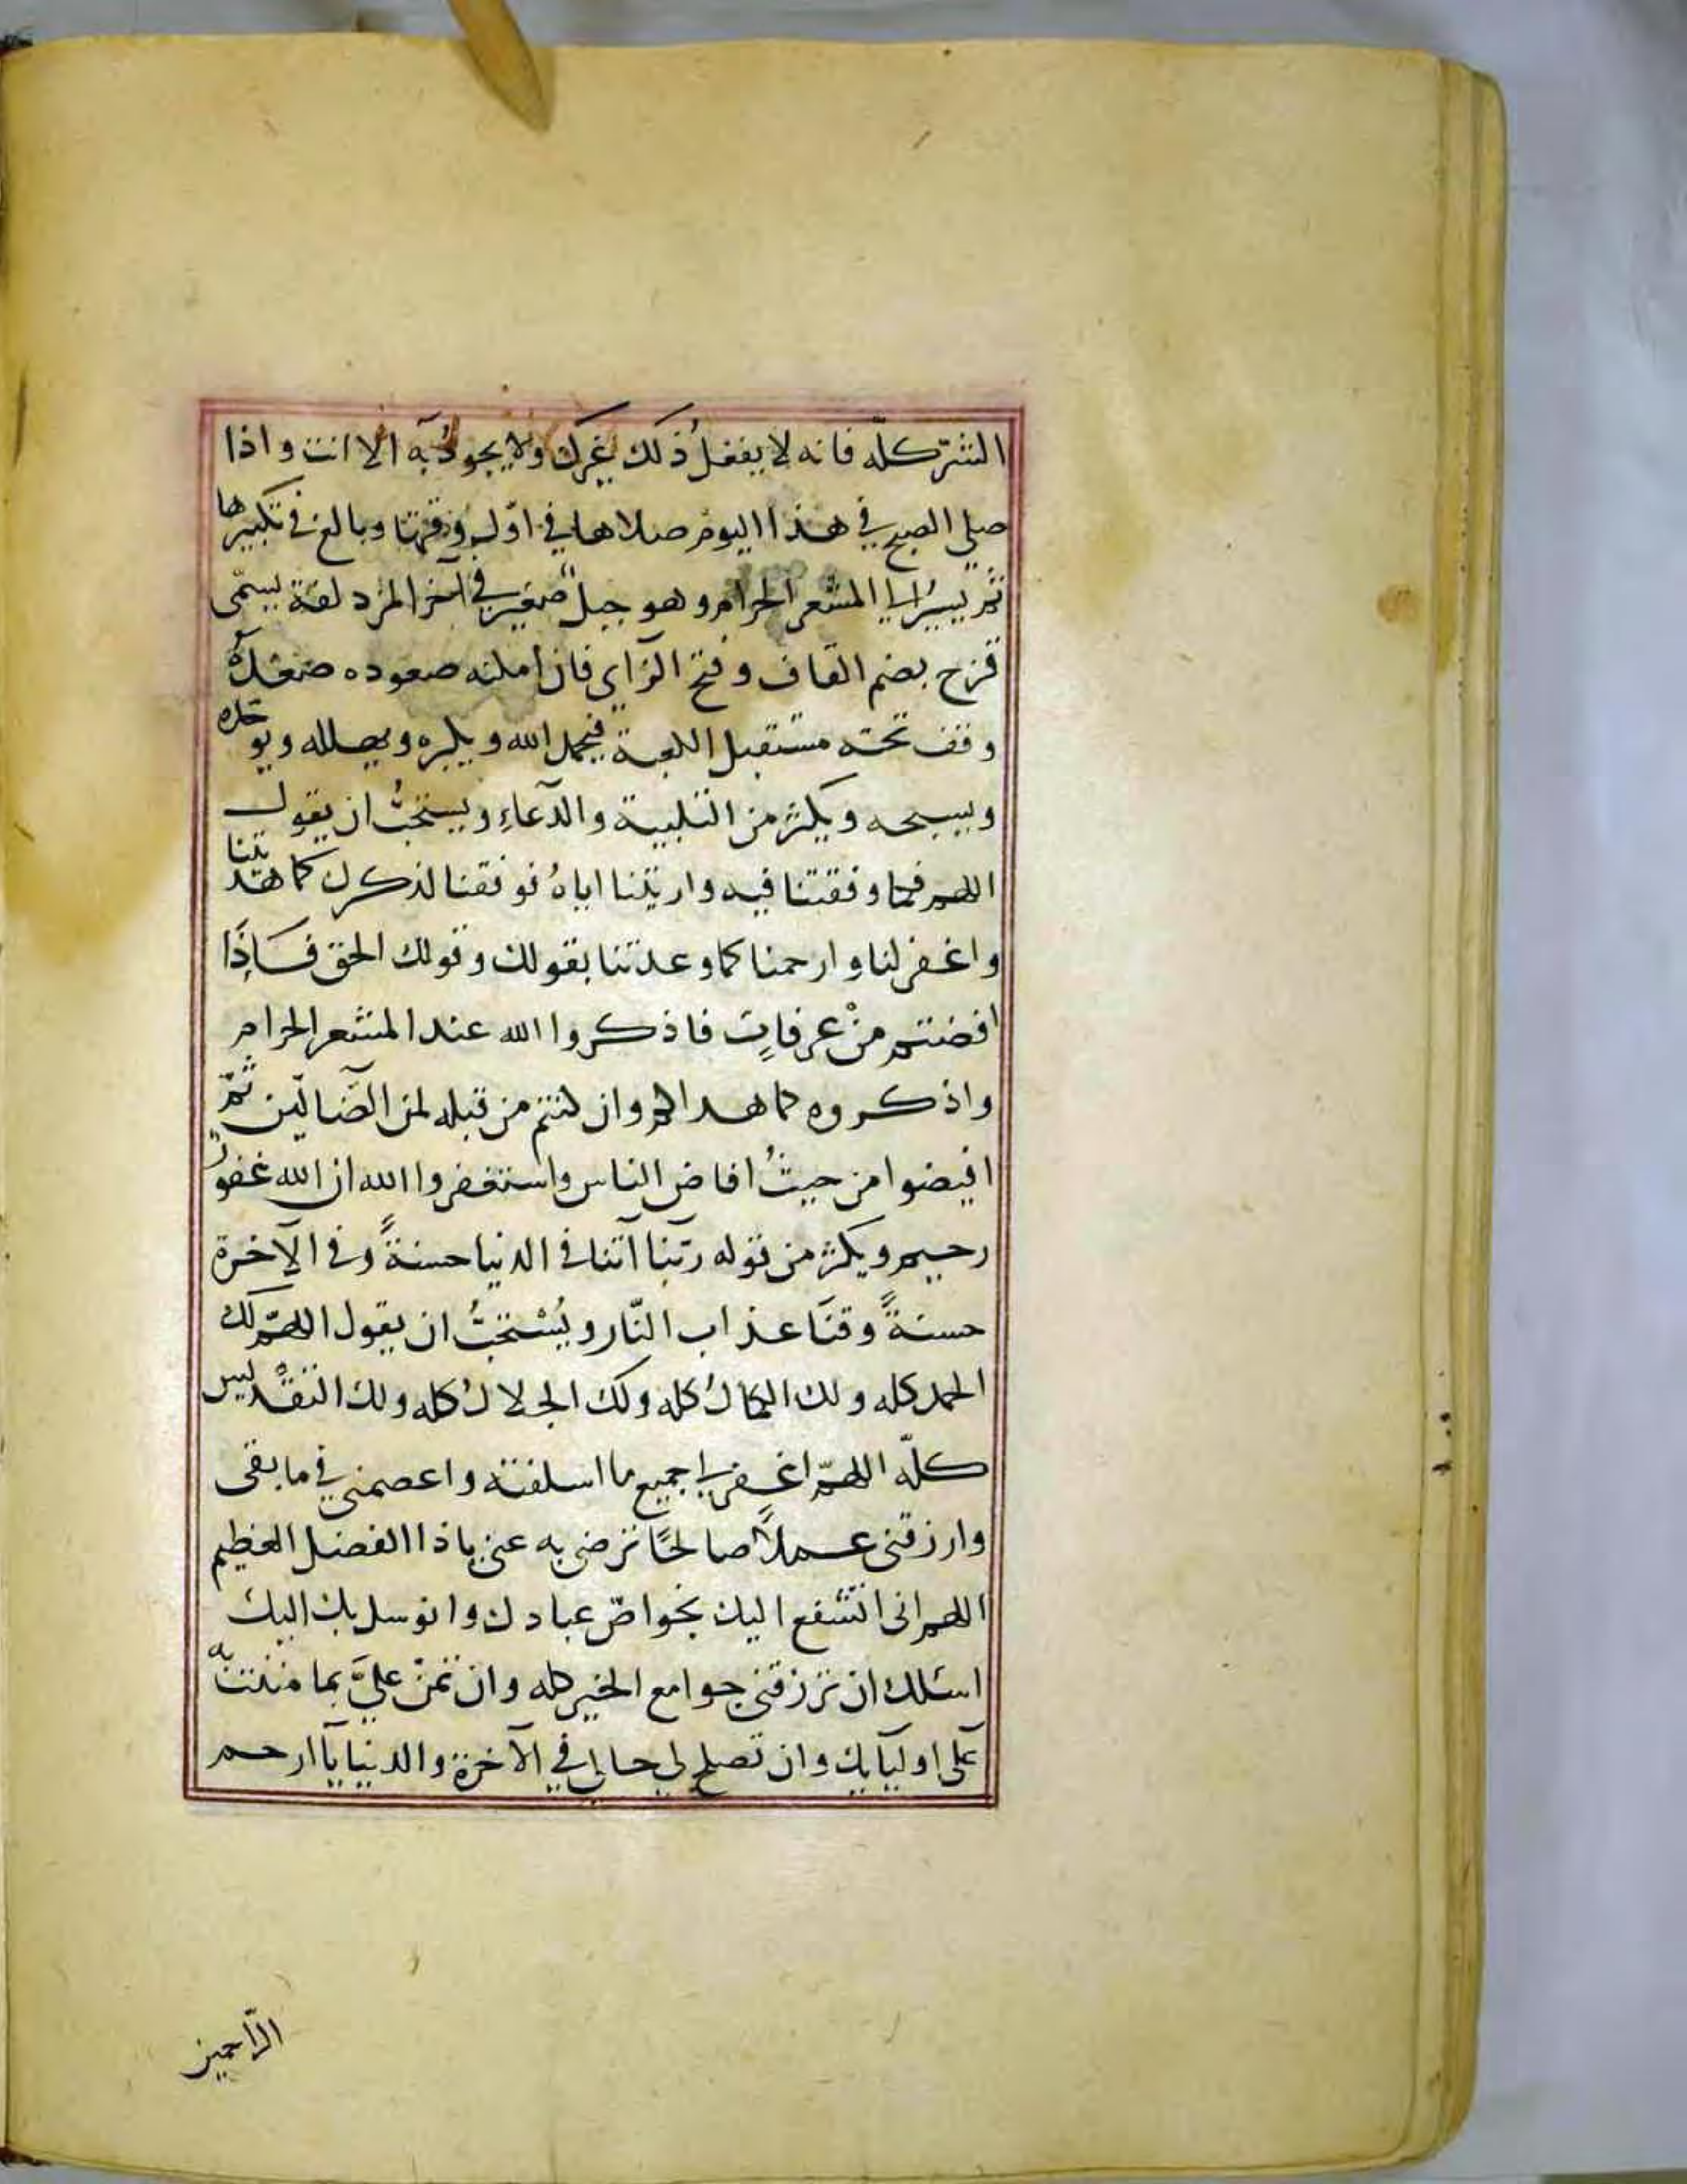 الشرّ كلّه فانه لا يفعلُ ذلك غيرك ولا يجودُ به الا انت واذا
صلى الصبح في هذا اليوم صلاها في اوّل وقتها وبالغ في تكبيرها
ثم يسيرُ الى المشعر الحرام وهو جبل صغير في آخر المزدلفة يسمّى
قزح بضم القاف وفتح الزاي فان امكنه صعوده صعدهُ
وقف تحته مستقبل الكعبة فيحمد الله ويكبره ويهلله ويوحده
ويسبحه ويكثر من التلبية والدّعاءِ ويستحبُّ ان يقول
اللهم فكما وفقتنا فيه واريتنا اياهُ فوفقنا لذكرك كما هديتنا
واغفر لنا وارحمنا كما وعدتنا بقولك وقولك الحق فَاِذَا
افضتم منْ عرفاتٍ فاذكروا الله عند المشعر الحرام
واذكروه كما هداكم وان كنتم من قبله لمن الضّآلّين ثمّ
افيضوا من حيثُ افاض الناس واستغفروا الله ان الله غفورٌ
رحيم ويكثر من قوله ربّنا آتنا في الدنيا حسنةً وفي الآخرة
حسنةً وقنَا عذاب النّار ويُسْتحبُّ ان يقول اللهمّ لك
الحمد كله ولك الكمالُ كله ولك الجلالُ كله ولك التقْديس
كلّه اللهمّ اغفر لي جميع ما اسلفته واعصمني في ما بقى
وارزقنى عملاً صالحًا ترضى به عني ياذا الفضل العظيم
اللهم انى اتشّفع اليك بخواصّ عبادك واتوسل بك اليك
اسئلك ان ترزقنى جوامع الخير كله وان تمنّ عليَّ بما مننت به
على اوليآيك وان تصلح لي حالي في الآخرة والدنيا يآ ارحم
الرّاحمين